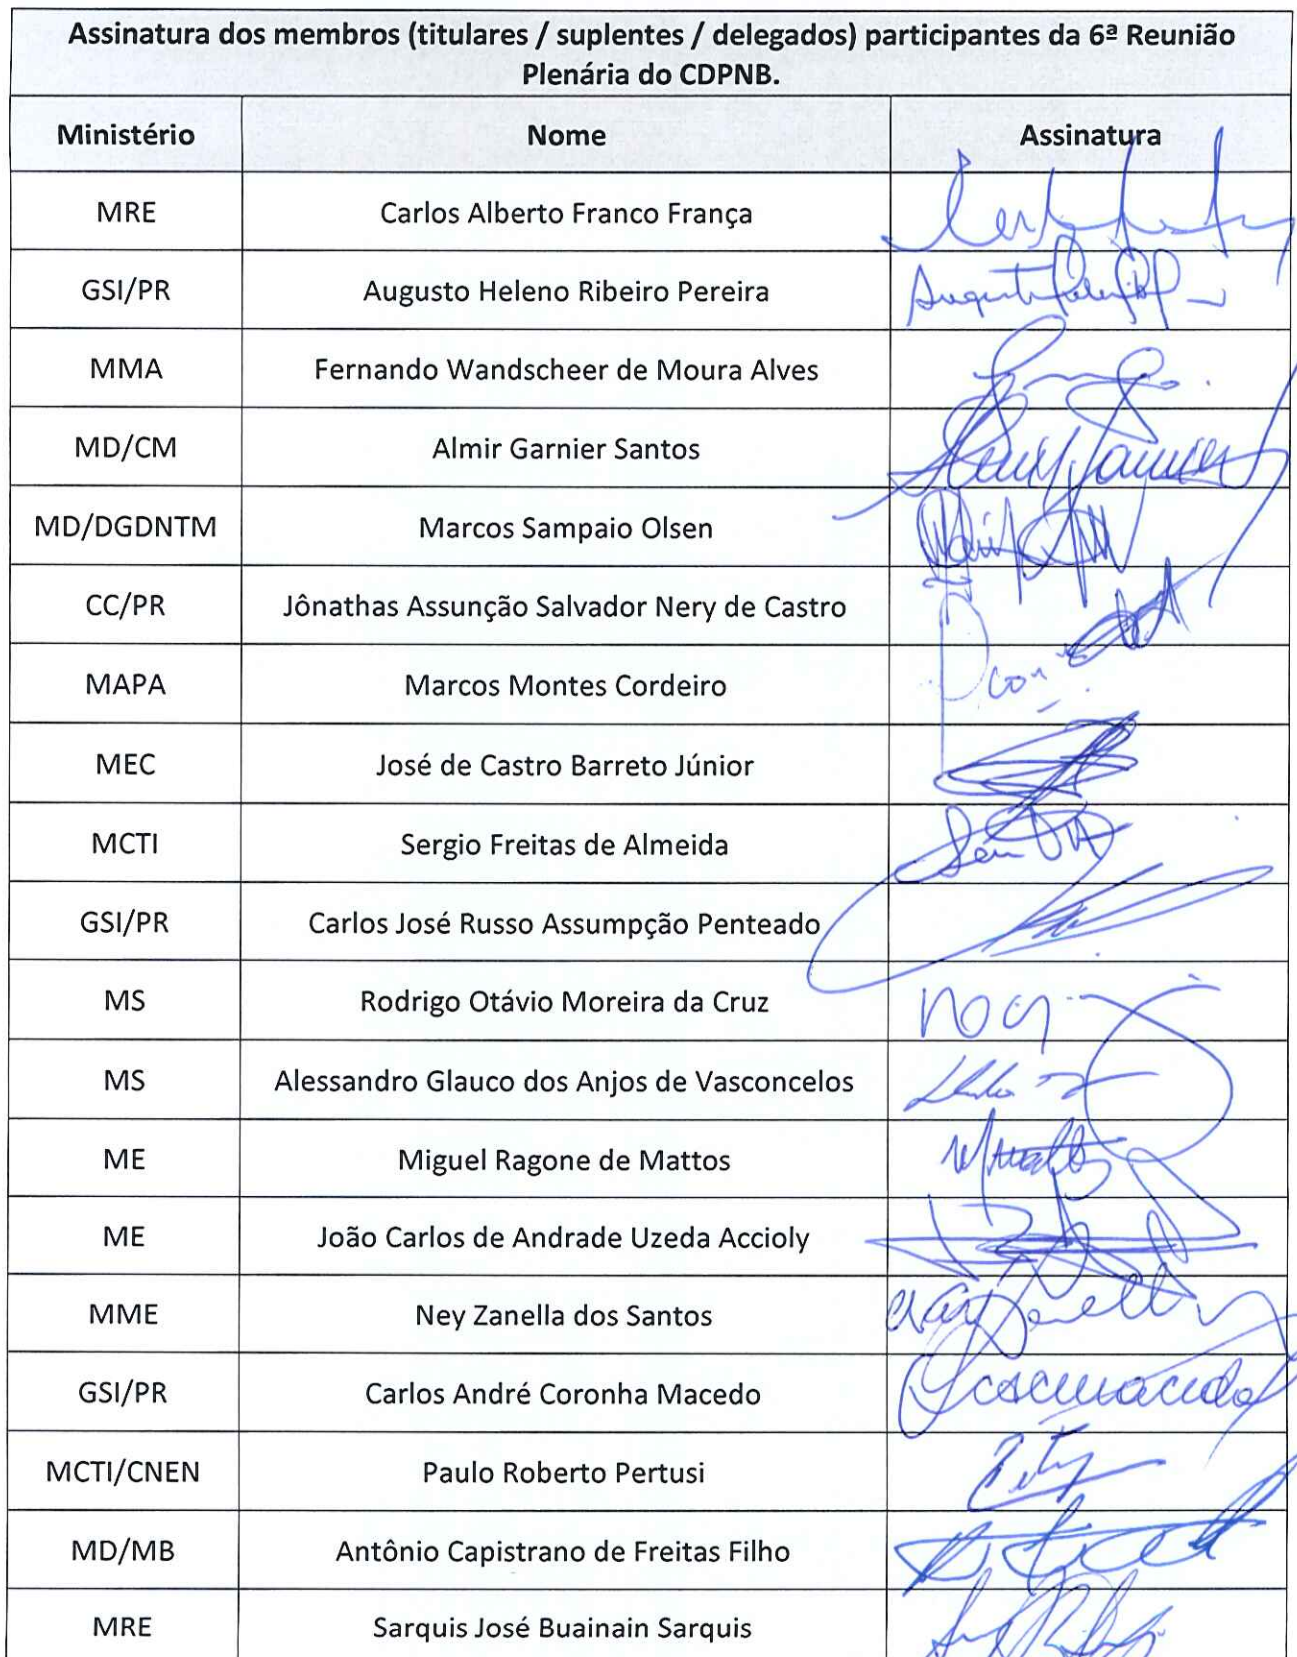 Assinatura dos membros (titulares / suplentes / delegados) participantes da 6ª Reunião
Plenária do CDPNB.
Ministério Nome Assinatura
MRE Carlos Alberto Franco França
GSI/PR Augusto Heleno Ribeiro Pereira
MMA Fernando Wandscheer de Moura Alves
MD/CM Almir Garnier Santos
MD/DGDNTM Marcos Sampaio Olsen
CC/PR Jônathas Assunção Salvador Nery de Castro
MAPA Marcos Montes Cordeiro
MEC José de Castro Barreto Júnior
MCTI Sergio Freitas de Almeida
GSI/PR Carlos José Russo Assumpção Penteado
MS Rodrigo Otávio Moreira da Cruz
MS Alessandro Glauco dos Anjos de Vasconcelos
ME Miguel Ragone de Mattos
ME João Carlos de Andrade Uzeda Accioly
MME Ney Zanella dos Santos
GSI/PR Carlos André Coronha Macedo
MCTI/CNEN Paulo Roberto Pertusi
MD/MB Antônio Capistrano de Freitas Filho
MRE Sarquis José Buainain Sarquis